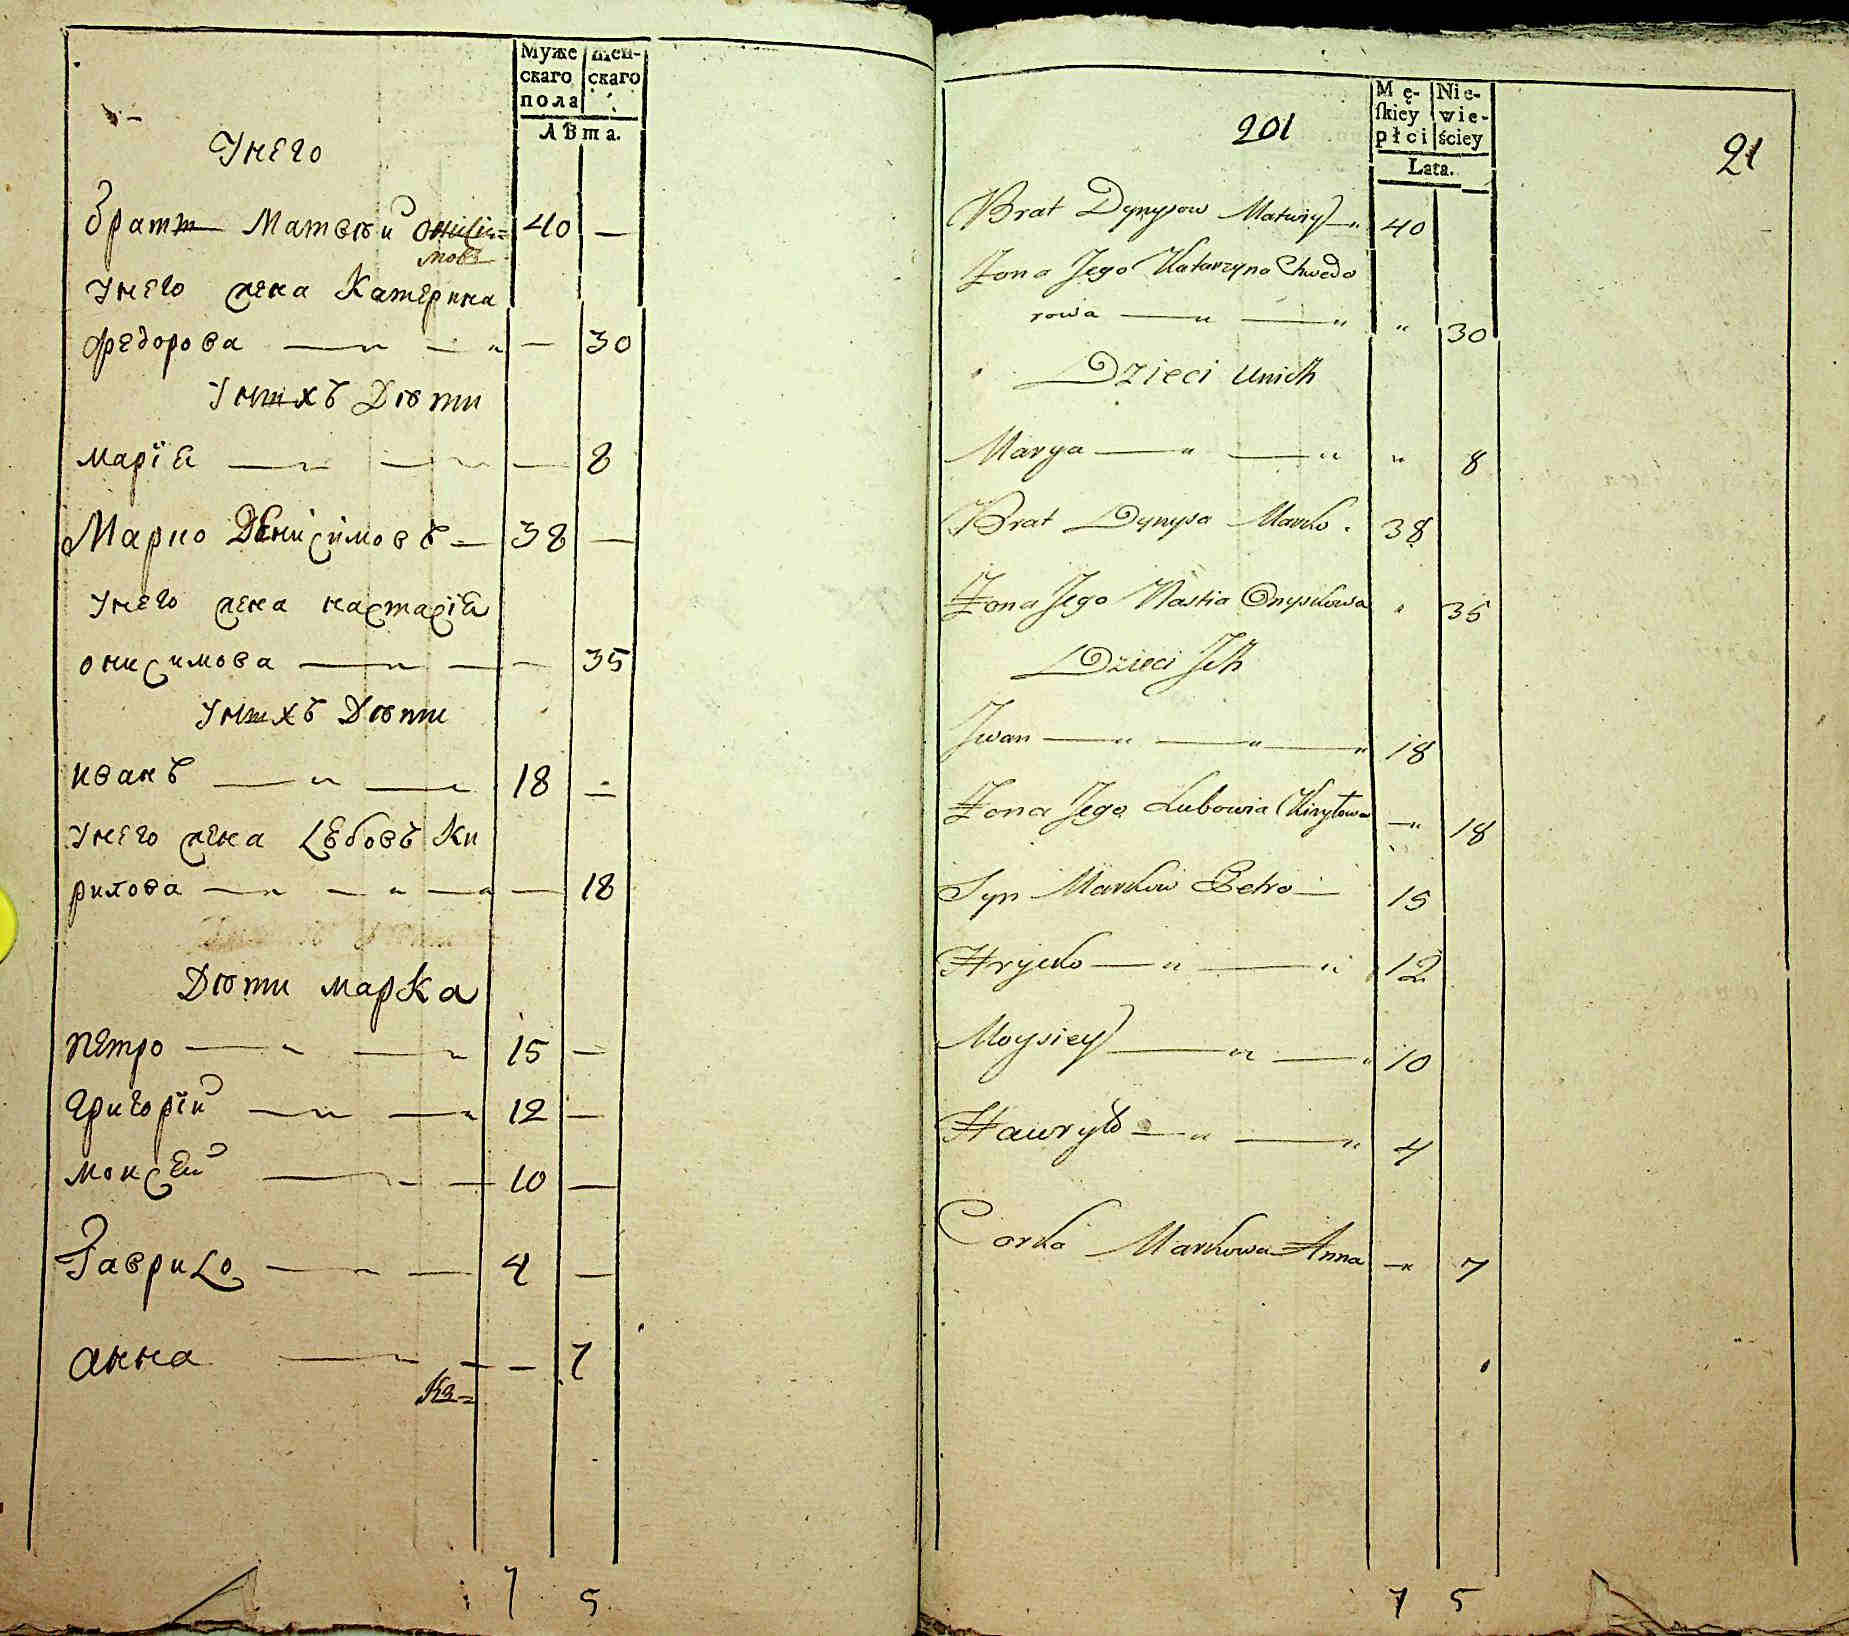 Муже
скаго
пола
Жен-
скаго
Лѣта.
Унего
братъ Матвѣй Онисимовъ 40 —
унего жена Катерина
Федорова — 30
Унихъ Дѣти
Марія — 8
Марко Денисимовъ 38 —
унего жена настасія
онисимова — 35
Унихъ Дѣти
иванъ 18 —
унего жена Любовъ Ки
рилова — 18
Дѣти марка
петро 15 —
григорій 12 —
моисей 10 —
Гаврило 4 —
анна — 7
7 5
201
21
Mę-
skiey
płci
Nie-
wie-
ściey
Lata.
Brat Dynysow Matwiy 40
Żona Jego Katarzyna Chwedo
rowa " 30
Dzieci unich
Marya " 8
Brat Dynysa Marko. 38
Żona Jego Nastia Onyskowa " 35
Dzieci Ich
Jwan 18
Żona Jego Lubowia Kiryłowa " 18
Syn Markow Petro 15
Hryćko 12
Moysiey 10
Hawryło 4
Corka Markowa Anna " 7
7 5